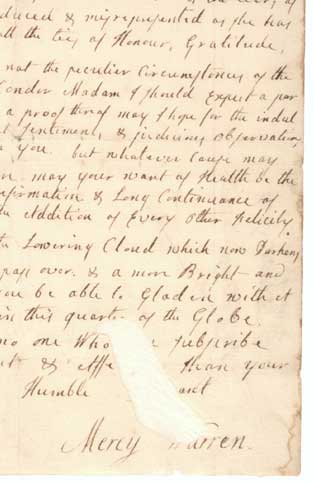 duced & misrepresented as she has
all the ties of Honour, Gratitude,
not the peculier Circumstances of the
Condor Madam I should expect a par
a proof threof may I hope for the indul
Sentiments & judicious Observation
you. but whatever Cause may
may your want of Health be the
nfirmation & Long Continuance of
Addition of Every other felicity
Lowering Cloud which now Darkens
pass over. & a more Bright and
you be able to Gladen with it
in this quarter of the Globe.
no one Who subscribe
& Affe than your
Humble ant
Mercy Warren.